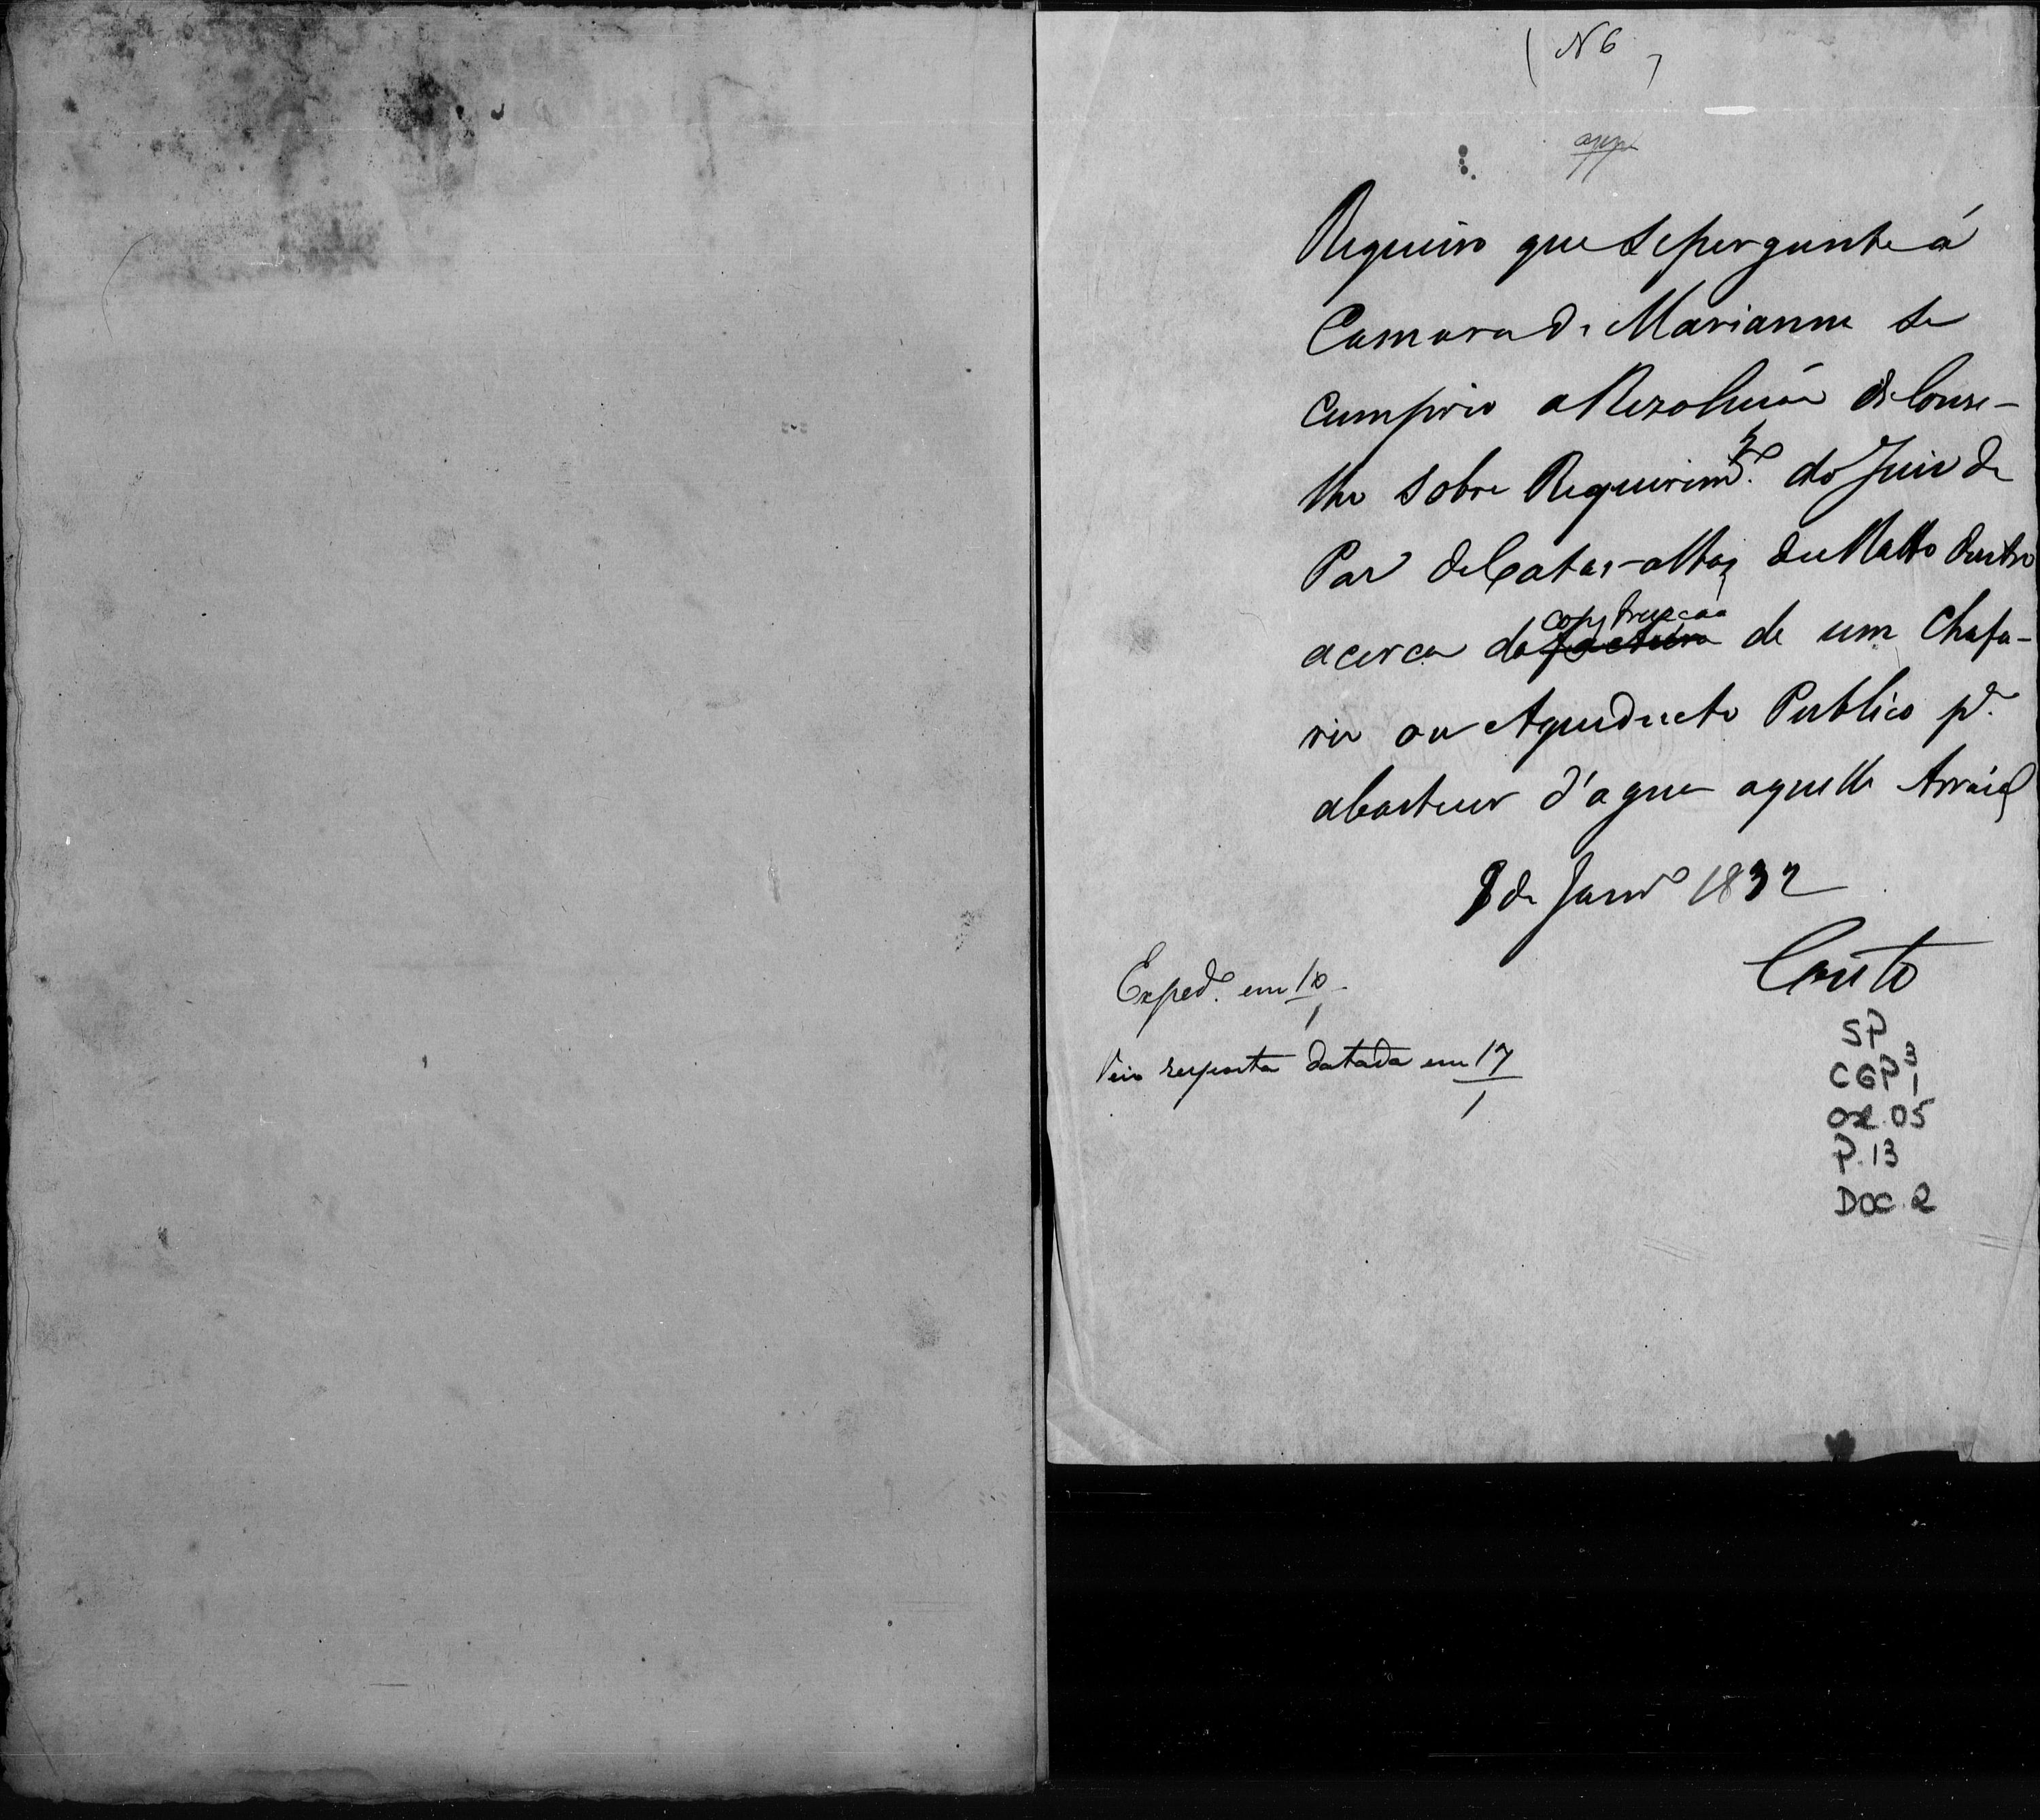 (N 6)
app
Requeiro que se pergunte á
Camara de Marianna se
cumprio a Rezolução do Conse-
lho sobre Requerimto. do Juiz de
Paz de Catas-altas do Matto dentro
acerca da factura construcção de um Chafa-
riz ou Aqueducto Publico pa.
abastecer d'agua aquelle Arraial
8 de Janro 1832
Couto
Exped. em 10
1
Veio resposta datada em 17
1
SP
CGP 3
1
cx. 05
P. 13
DOC. 2